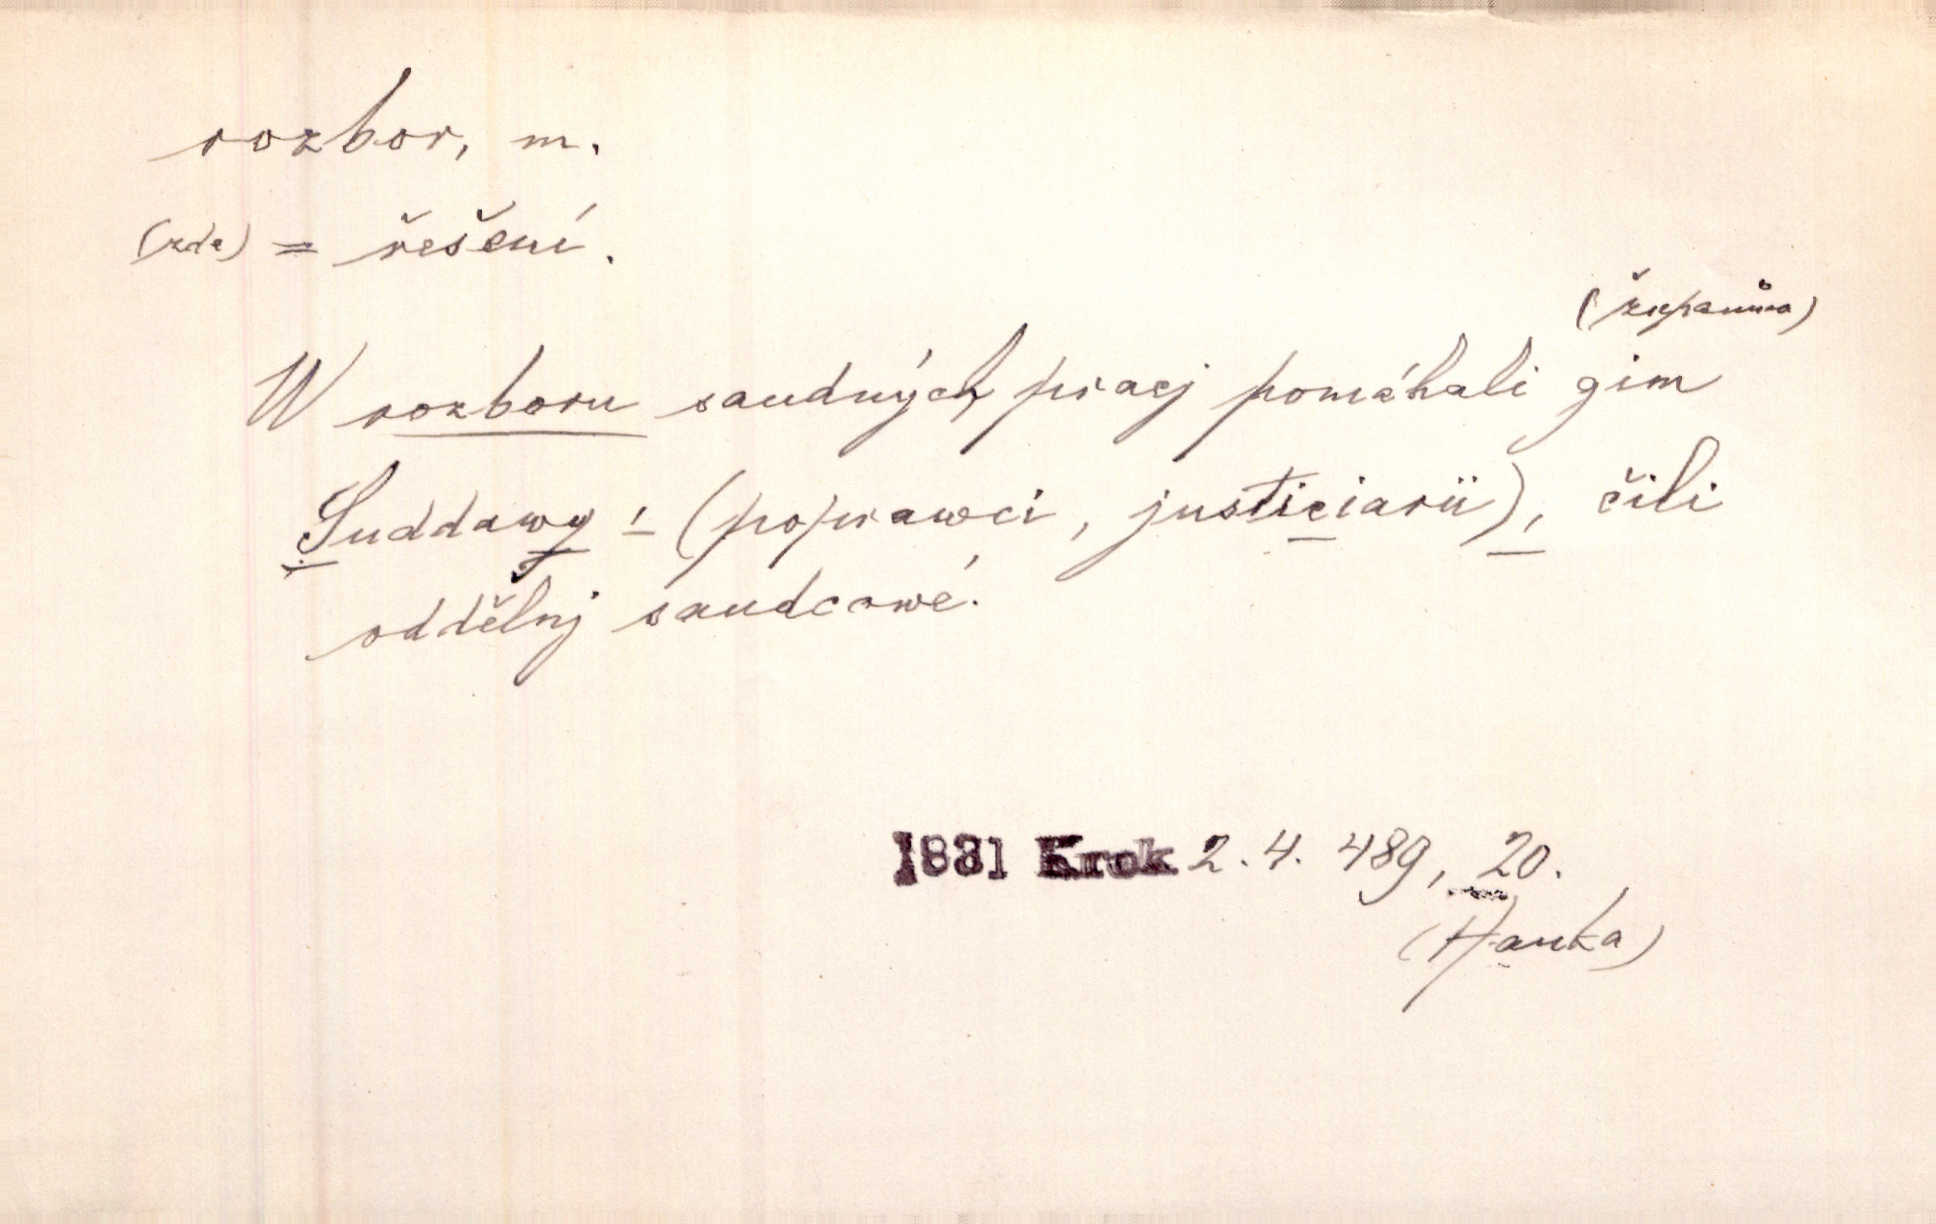 rozbor, m.
(zde) = řešení.
(županům)
W rozboru saudných pracj pomáhali gim
Suddawy, (poprawci, justiciarii), čili
oddělnj saudcowé.
1831 Krok 2.4. 489, 20.
(Hanka)